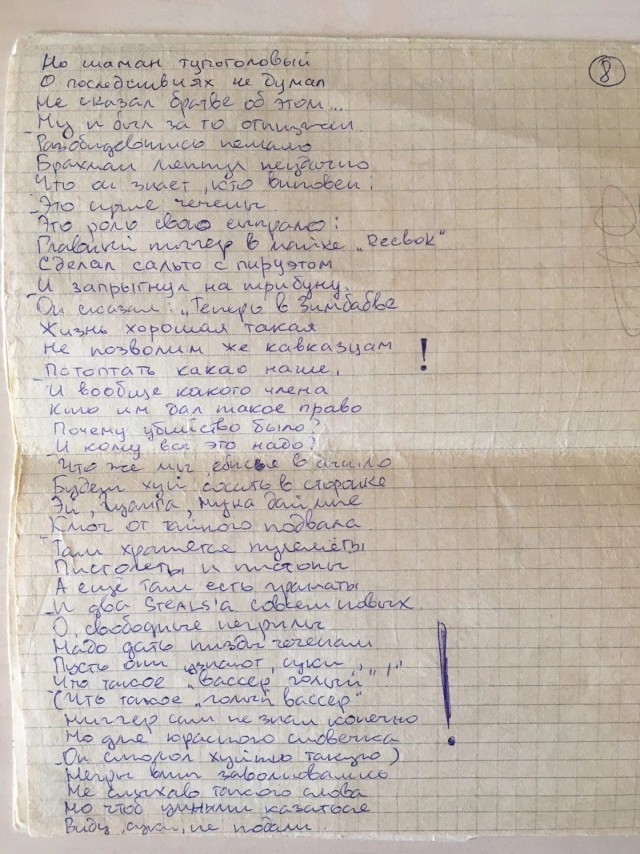 8
Но шаман тупоголовый
О последствиях не думал
Не сказал братве об этом...
Ну и был за то отпизжен
Разобидевшись немало
Брахман ляпнул неудачно
Что он знает, кто виновен:
Это чечены
Это роль свою сыграло:
Главный ниггер в майке „Reebok“
Сделал сальто с пируэтом
И запрыгнул на трибуну.
Он сказал: „Теперь в Зимбабве
Жизнь хорошая такая
Не позволим же кавказцам !
Потоптать какао наше,
И вообще какого члена
Кто им дал такое право
Почему убийство было?
И кому всё это надо?
Что же мы, в
Будем хуй сосать в сторонке
Эй, мне
Ключ от тайного подвала
Там хранятся пулемёты
Пистолеты и патроны
А ещё там есть гранаты
И два Steals'а совсем новых
О, свободные негрилы
Надо дать пизды чеченам
Пусть они узнают, суки, !
Что такое „вассер голый“
(Что такое „голый вассер“
Ниггер сам не знал конечно
Но для красного словечка
Он спорол хуйню такую)
Негры вмиг заволновались
Не слыхав такого слова
Но чтоб умными казаться
Виду, суки, не подали